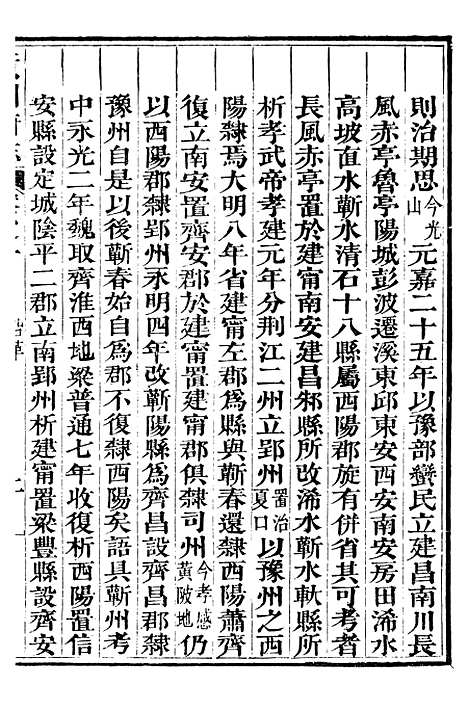 則治期思今光山元嘉二十五年以豫部蠻民立建昌南川長
風赤亭魯亭陽城彭波遷溪東邱東安西安南安房田浠水
高坡直水蘄水清石十八縣屬西陽郡旋有併省其可考者
長風赤亭置於建甯南安建昌邾縣所改浠水蘄水軑縣所
析孝武帝孝建元年分荆江二州立郢州置治夏口以豫州之西
陽隸焉大明八年省建甯左郡爲縣與蘄春還隸西陽蕭齊
復立南安置齊安郡於建甯置建甯郡俱隸司州今孝感黄陂地仍
以西陽郡隸郢州永明四年改蘄陽縣爲齊昌設齊昌郡隸
豫州自是以後蘄春始自爲郡不復隸西陽矣語具蘄州考
中永光二年魏取齊淮西地梁普通七年收復析西陽置信
安縣設定城陰平二郡立南郢州析建甯置梁豐縣設齊安